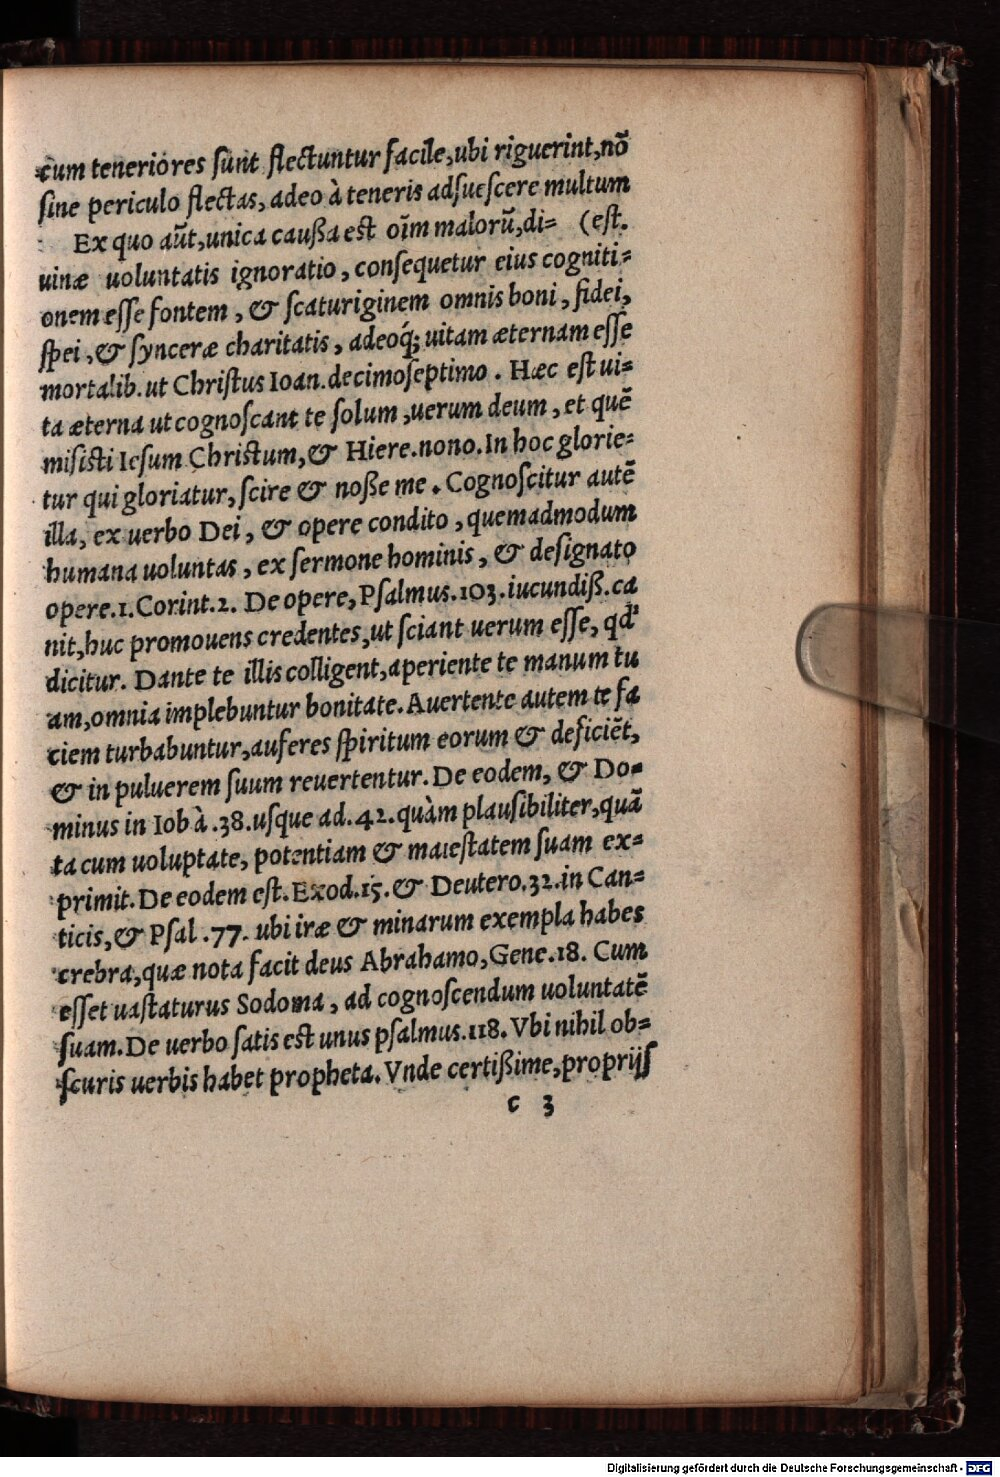 cum teneriores sunt flectuntur facile, ubi riguerint, nõ
sine periculo flectas, adeo à teneris adsuescere multum
Ex quo aũt, unica caußa est oĩm malorũ, di= (est.
uinæ uoluntatis ignoratio, consequetur eius cogniti=
onem esse fontem, & scaturiginem omnis boni, fidei,
spei, & synceræ charitatis, adeoq́; uitam æternam esse
mortalib. ut Christus Ioan. decimoseptimo. Hæc est ui=
ta æterna ut cognoscant te solum, uerum deum, et quẽ
misisti Iesum Christum, & Hiere. nono. In hoc glorie=
tur qui gloriatur, scire & noße me. Cognoscitur autẽ
illa, ex uerbo Dei, & opere condito, quemadmodum
humana uoluntas, ex sermone hominis, & designato
opere. 1. Corint. 2. De opere, Psalmus. 103. iucundiß. ca
nit, huc promouens credentes, ut sciant uerum esse, qd'
dicitur. Dante te illis colligent, aperiente te manum tu
am, omnia implebuntur bonitate. Auertente autem te fa
ciem turbabuntur, auferes spiritum eorum & deficiẽt,
& in puluerem suum reuertentur. De eodem, & Do=
minus in Iob à .38. usque ad .42. quàm plausibiliter, quã
ta cum uoluptate, potentiam & maiestatem suam ex=
primit. De eodem est. Exod. 15. & Deutero. 32. in Can=
ticis, & Psal. 77. ubi iræ & minarum exempla habes
crebra, quæ nota facit deus Abrahamo, Gene. 18. Cum
esset uastaturus Sodoma, ad cognoscendum uoluntatẽ
suam. De uerbo satis est unus psalmus. 118. Vbi nihil ob=
scuris uerbis habet propheta. Vnde certißime, proprijs
c 3
Digitalisierung gefördert durch die Deutsche Forschungsgemeinschaft - DFG